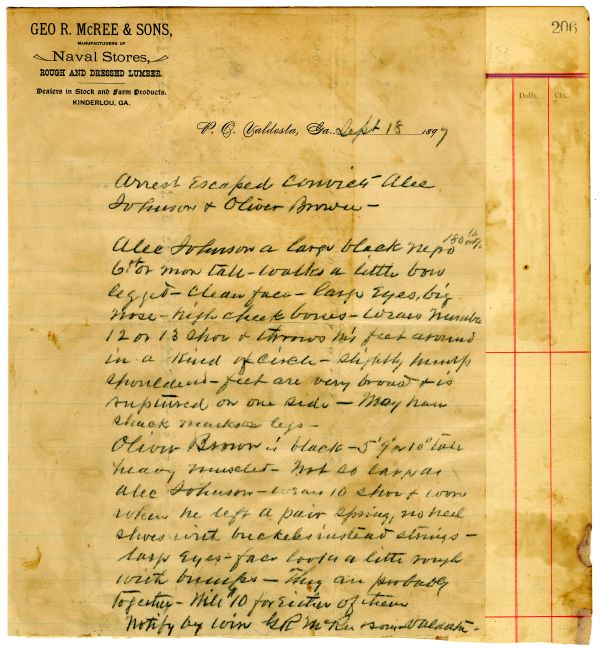 GEO R. McREE & SONS,
MANUFACTURERS OF
Naval Stores,
ROUGH AND DRESSED LUMBER.
Dealers in Stock and Farm Products.
KINDERLOU, GA.
206
Dolls.
Cts.
P. O. Valdosta, Ga., Sept 18 1897
Arrest Escaped Convicts Alec
Johnson & Oliver Brown -
Alec Johnson a large black negro 180 lb
6 ft or more tall - walks a little bow
legged - clean face - large Eyes, big
nose - high cheek bones - wears number
12 or 13 shoe & throws his feet around
in a kind of circle - slightly hump
shouldered - feet are very broad & is
ruptured on one side - May have
shack marks legs -
Oliver Brown is black - 5' 9" or 10" tall
heavy muscled - Not so large as
Alec Johnson - wears 10 shoe & wore
when he left a pair spring, no heel
shoes with buckles instead strings -
large Eyes - face looks a little rough
with bumps - They are probably
together - Will $10 for Either of them
Notify by wire G R McRee & sons Valdosta -